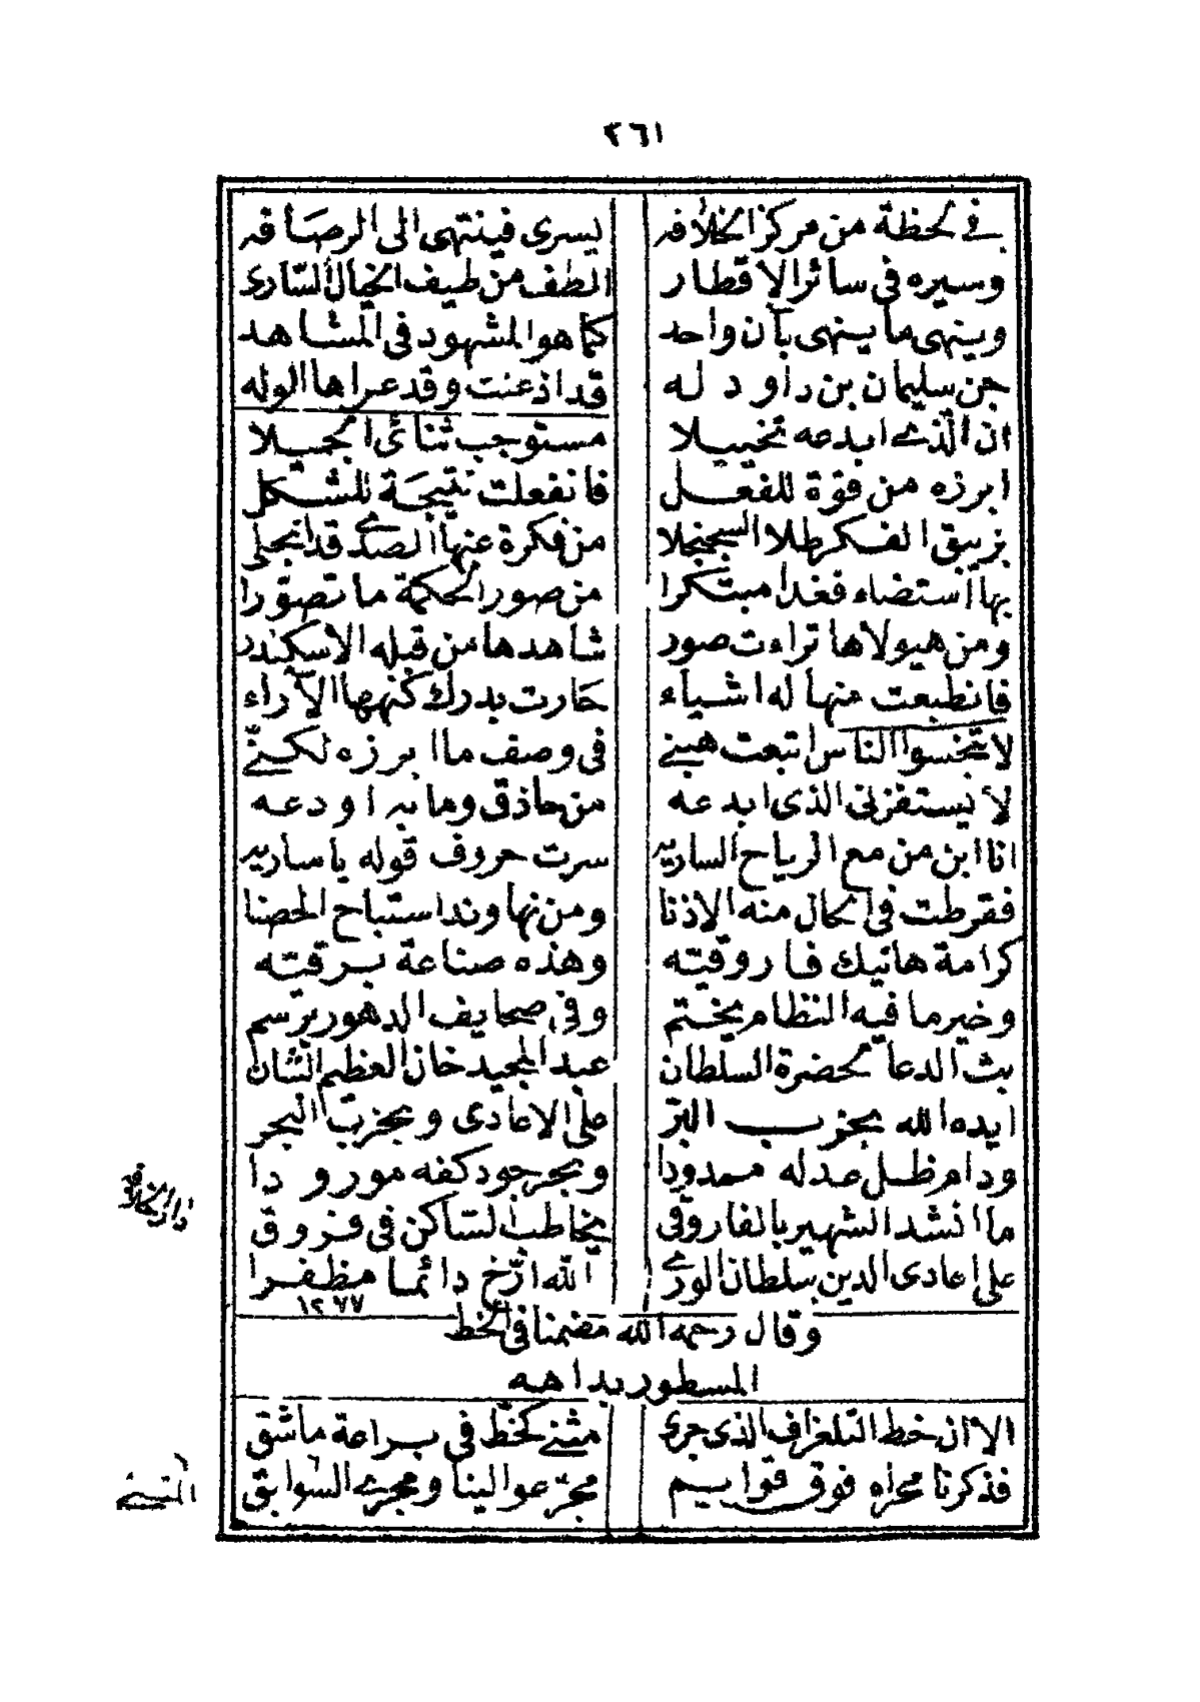 ٢٦١
في لحظة من مركز الخلافه يسرى فينتهى الى الرصافه
وسيره في سائر الاقطار الطف من طيف الخيال السارى
وينهى ما ينهى بآن واحد كما هو المشهود في المشاهد
جن سليمان بن داود له قد اذعنت وقد عراها الوله
ان الّذے ابدعه تخييلا مستوجب ثنائى الجميلا
ابرزه من قوة للفعل فانفعلت نتيجة للشكل
بزيبق الفكر طلا السجنجلا من فكرة عنها الصدے قد انجلى
بها استضاء فغدا مبتكرا من صور الحكمة ما تصوّرا
ومن هيولاها تراءت صور شاهدها من قبله الاسكندر
فانطبعت منها له اشياء حارت بدرك كنهها الآراء
لا تبخسوا الناس اتبعت هبنے في وصف ما ابرزه لكنّے
لا يستفزنى الذى ابدعه من حاذق وما به اودعه
انا ابن من مع الرياح الساريه سرت حروف قوله يا ساريه
فقرطت في الحال منه الاذنا ومن نهاوند استباح الحصنا
كرامة هاتيك فاروقيته وهذه صناعة برقيته
وخير ما فيه النظام يختم وفي صحايف الدهور يرسم
بث الدعا لحضرة السلطان عبد المجيد خان العظيم الشان
ايده الله بحزب البرّ على الاعادى وبحزب البحر
ودام ظل عدله ممدودا وبحر جود كفه مورودا
ما انشد الشهير بالفاروقى يخاطب الساكن في فروق
على اعادى الدين سلطان الورے الله ارّخ دائما مظفرا
١٢٧٧
وقال رحمه الله مضمنا في الخط
المسطور بداهه
الا ان خط التلغراف الذى جرى مثنے كخط في براعة ماشق
فذكرنا مجراه فوق قوايم مجرّ عوالينا ومجرے السوابق